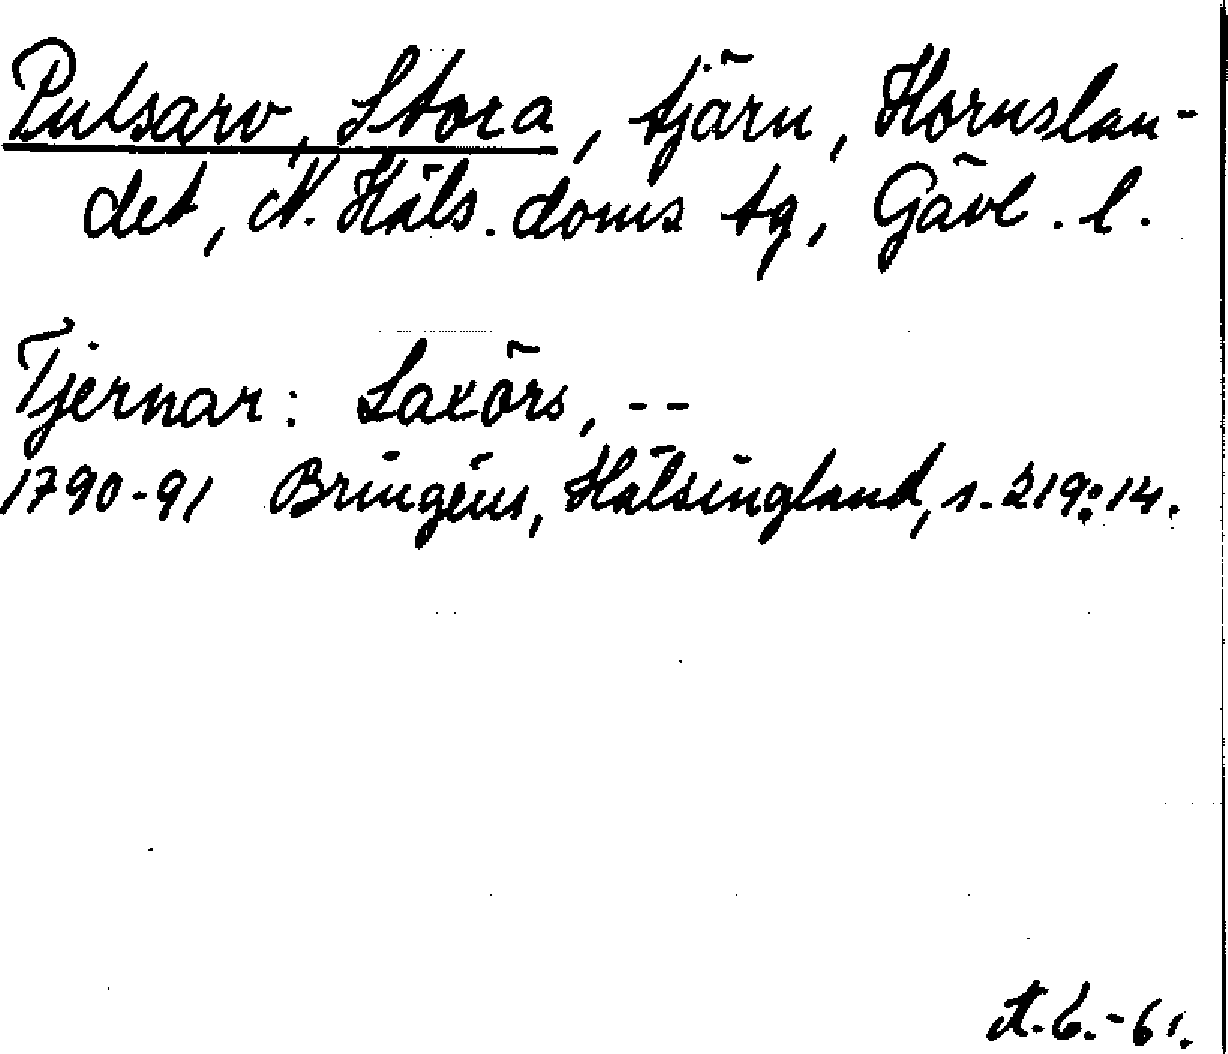 Pulsarv, Stora, tjärn, Hornslan-
det, N. Häls. doms tg, Gävl. l.
Tjernar: Laxörs, --
1790-91 Bringéus, Hälsingland, s. 219:14.
A.6.-61.